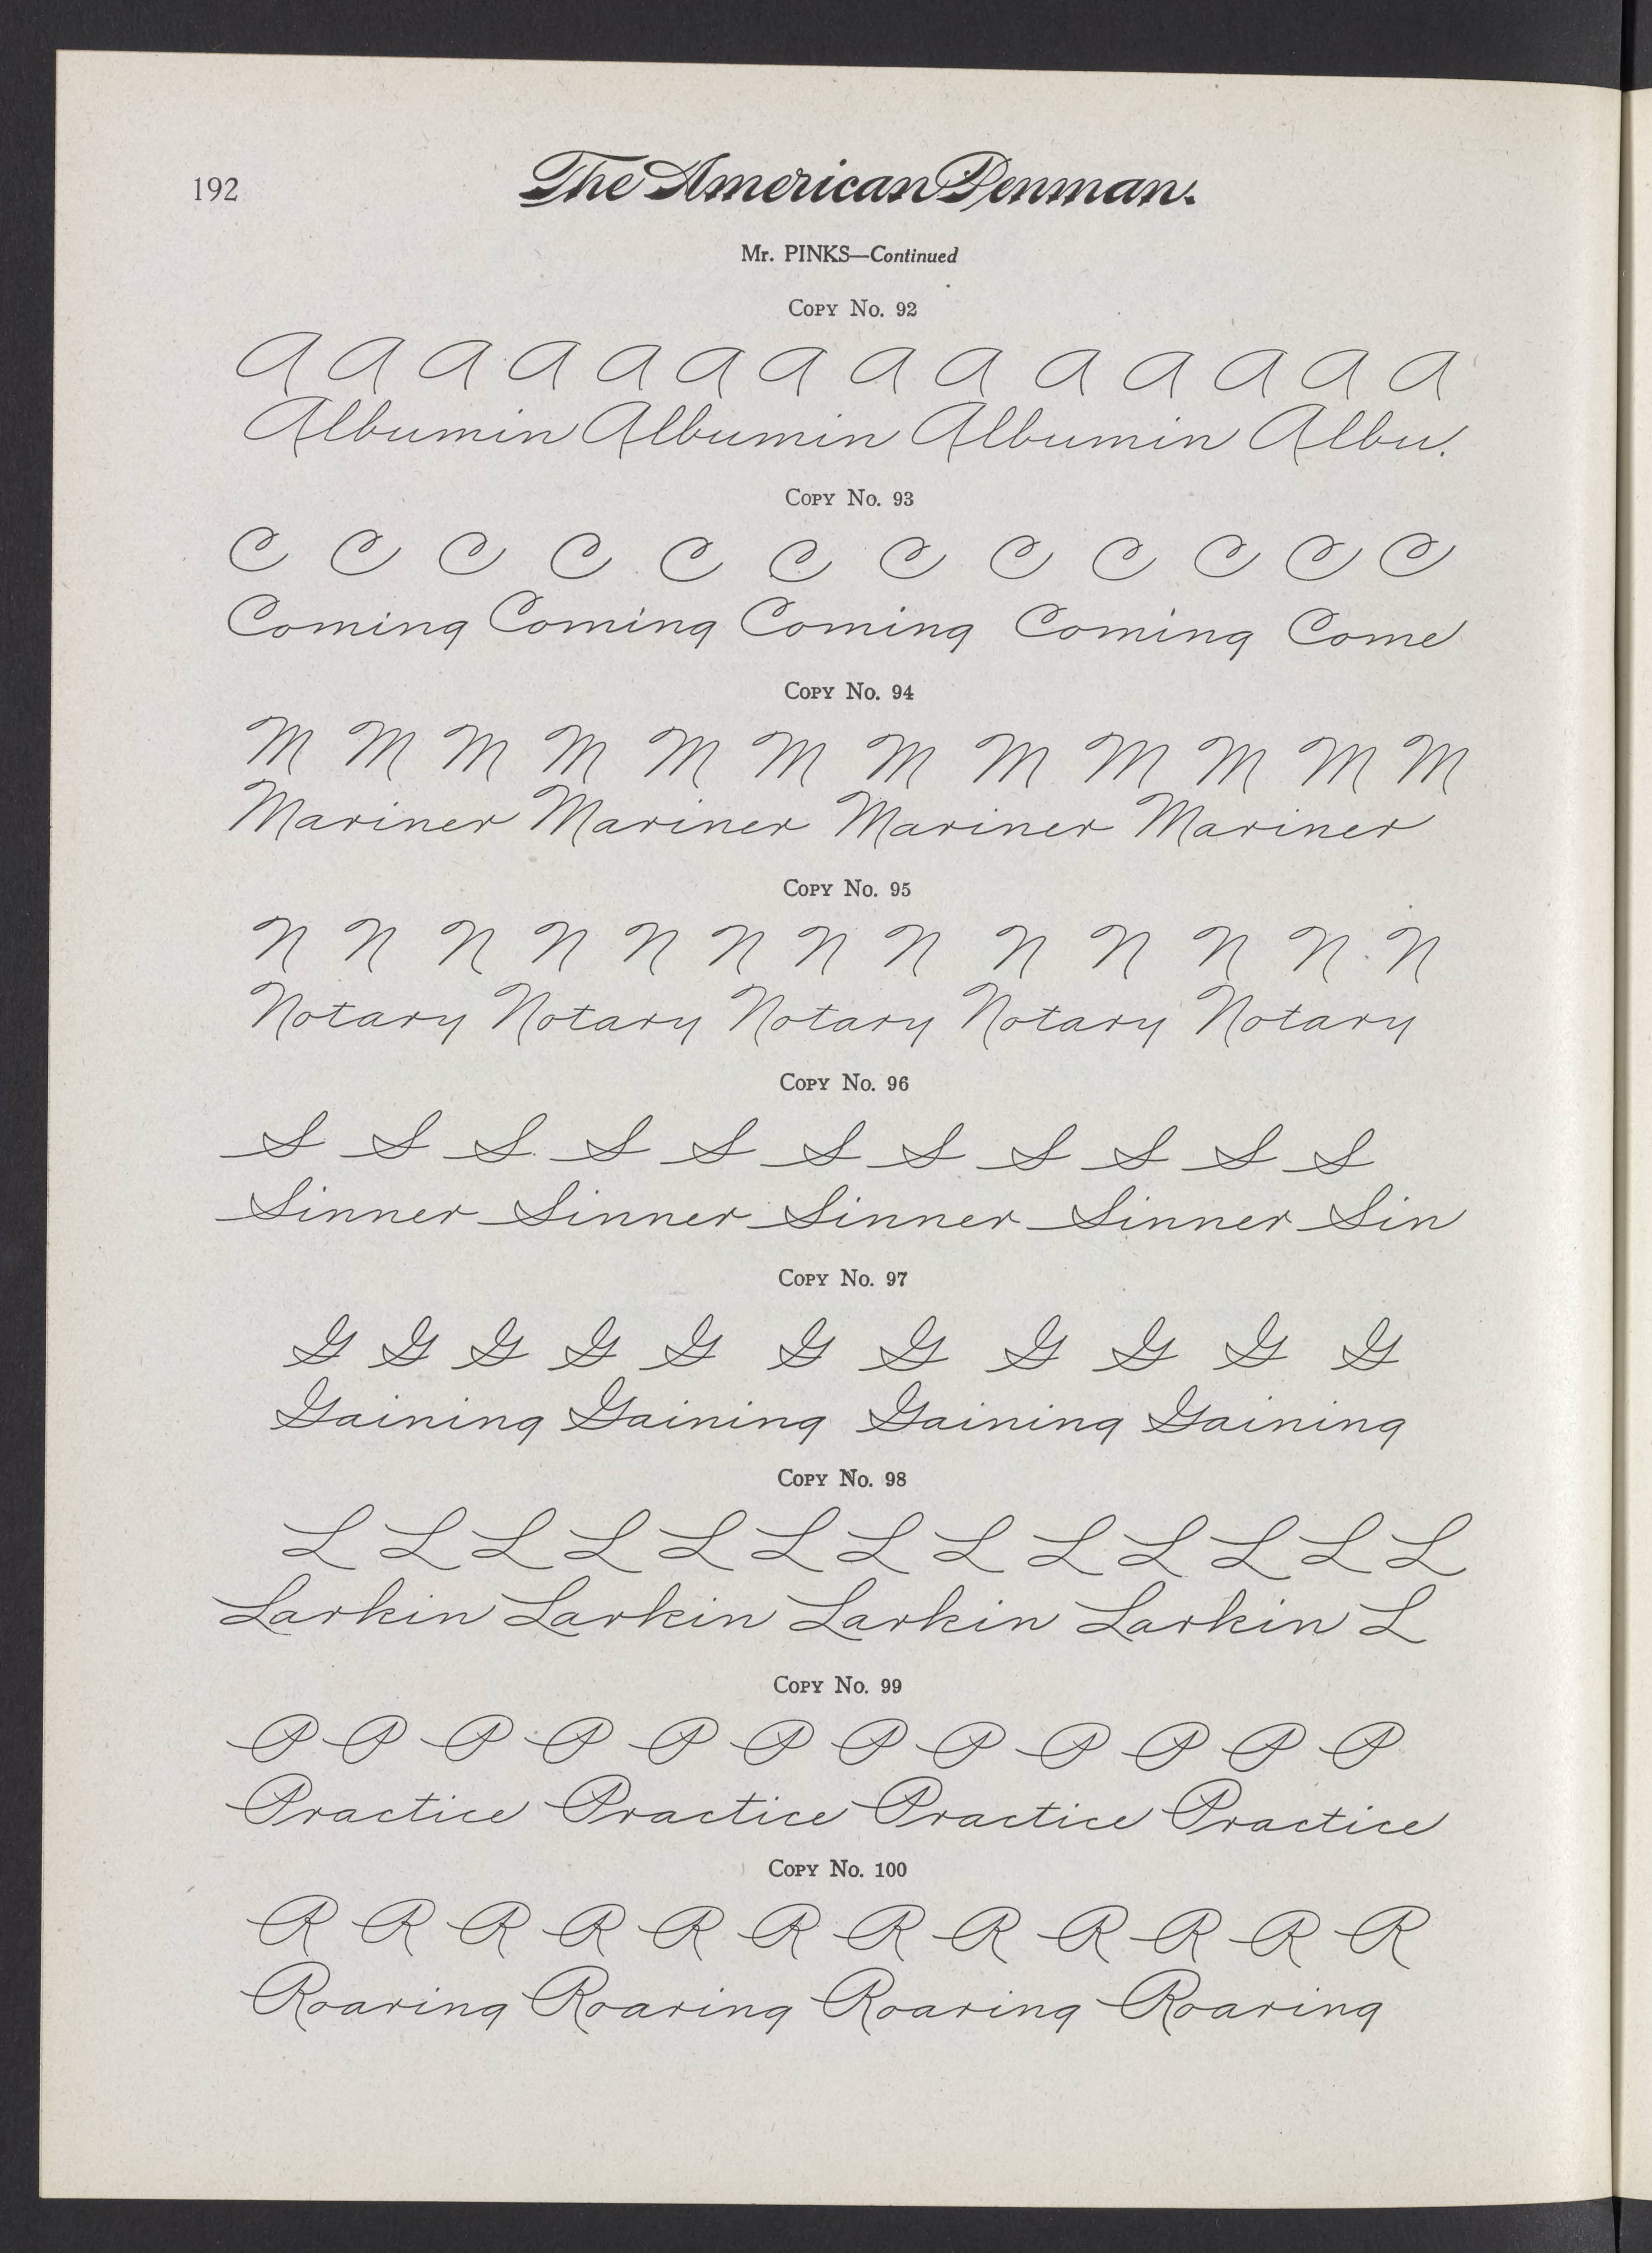 192
The American Penman.
Mr. PINKS—Continued
Copy No. 92
A A A A A A A A A A A A A A
Albumin Albumin Albumin Albu.
Copy No. 93
C C C C C C C C C C C C
Coming Coming Coming Coming Come
Copy No. 94
M M M M M M M M M M M M
Mariner Mariner Mariner Mariner
Copy No. 95
N N N N N N N N N N N N N
Notary Notary Notary Notary Notary
Copy No. 96
S S S S S S S S S S S
Sinner Sinner Sinner Sinner Sin
Copy No. 97
G G G G G G G G G G G
Gaining Gaining Gaining Gaining
Copy No. 98
L L L L L L L L L L L L L
Larkin Larkin Larkin Larkin L
Copy No. 99
P P P P P P P P P P P P
Practice Practice Practice Practice
Copy No. 100
R R R R R R R R R R R R
Roaring Roaring Roaring Roaring